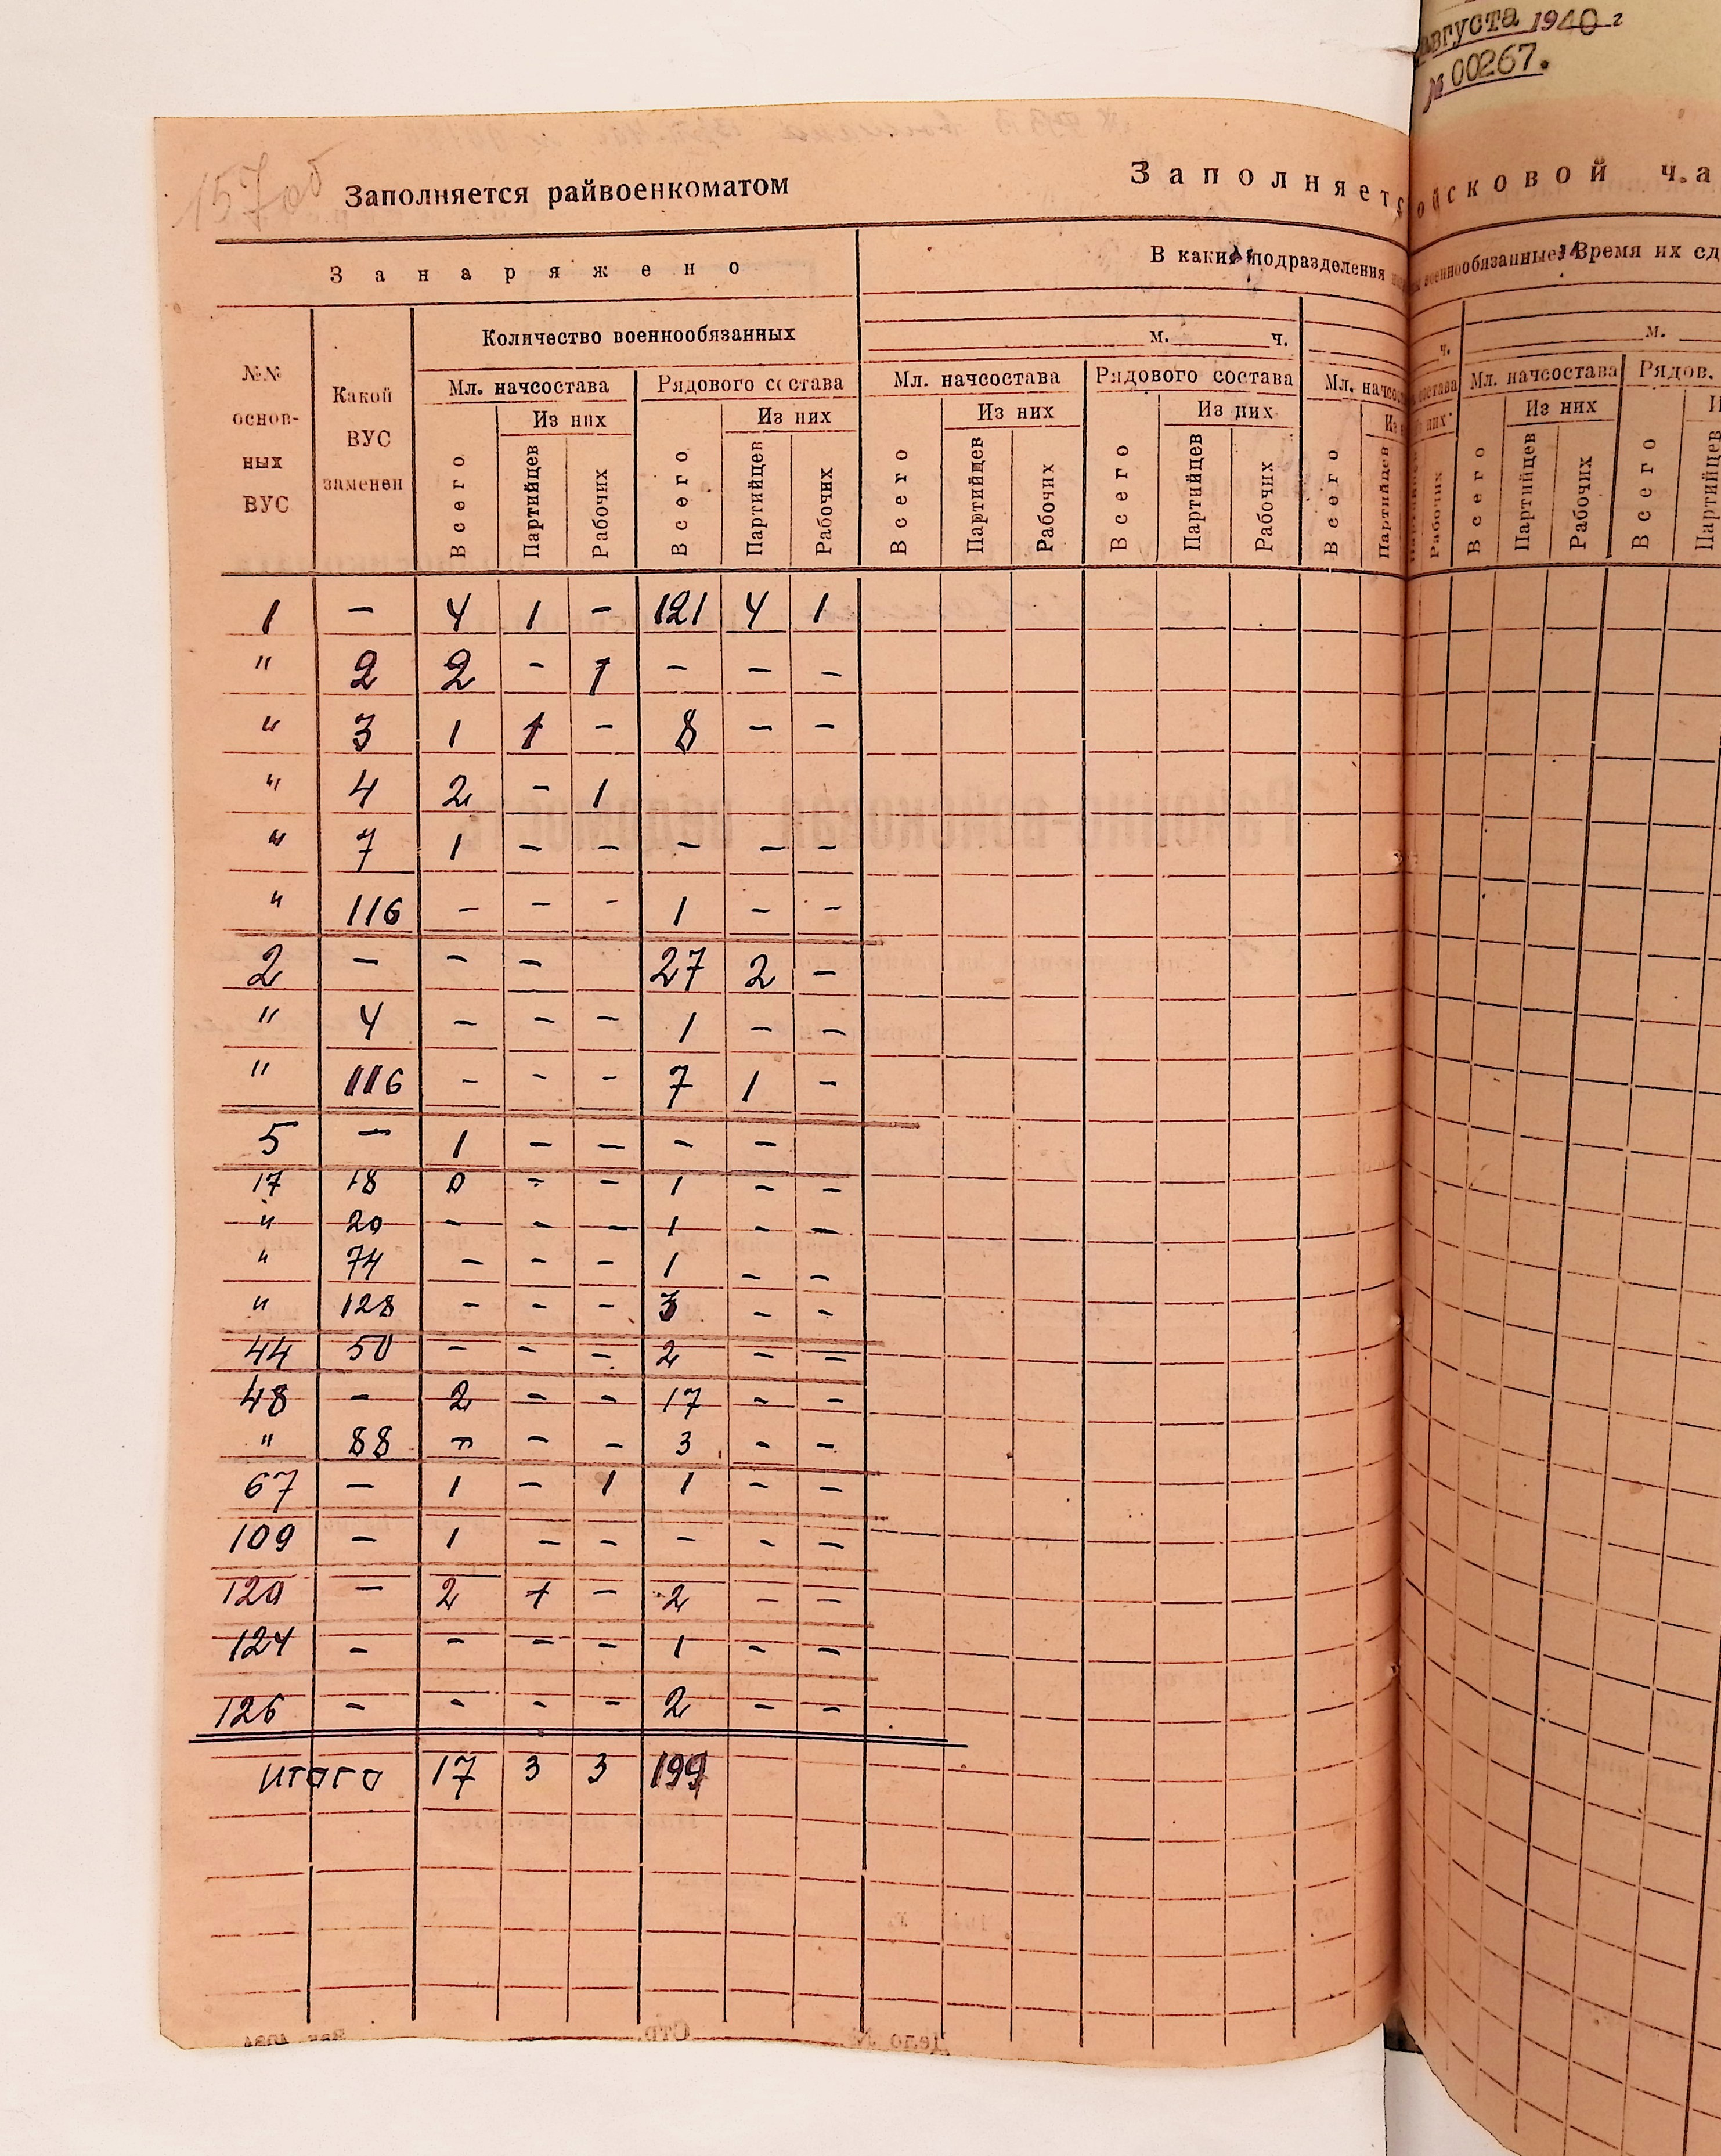 августа 1940 г
№ 00267.
157об
Заполняется райвоенкоматом
Заполняетс
ойсковой ча
Занаряжено
В какие подразделения
военнообязанные
Время их сд
№№ основ-ных ВУС
Какой ВУС заменен
Количество военнообязанных
м. ч.
ч.
м.
Мл. начсостава Рядового состава Мл. начсостава Рядового состава Мл. начсос
состава Мл. начсостава Рядов.
Из них Из них Из них Из них Из н
Из них Из них И
Всего Партийцев Рабочих Всего Партийцев Рабочих Всего Партийцев Рабочих Всего Партийцев Рабочих Всего Партийцев
Рабочих Всего Партийцев Рабочих Всего Партийцев
1 — 4 1 — 121 4 1
" 2 2 - 1 — — —
" 3 1 1 - 8 — —
" 4 2 - 1
" 7 1 — — — — —
" 116 — — - 1 — —
2 — — — 27 2 —
" 4 — — — 1 — —
" 116 — - — 7 1 —
5 — 1 — — — —
17 18 0 - — 1 — —
" 20 — — — 1 — —
" 74 — — — 1 — —
" 128 — — — 3 — —
44 50 — — — 2 — —
48 — 2 — — 17 — —
" 88 — — — 3 — —
67 — 1 — 1 1 — —
109 — 1 — — — — —
120 — 2 1 — 2 — —
124 — — — — 1 — —
126 — — — — 2 — —
Итого 17 3 3 199